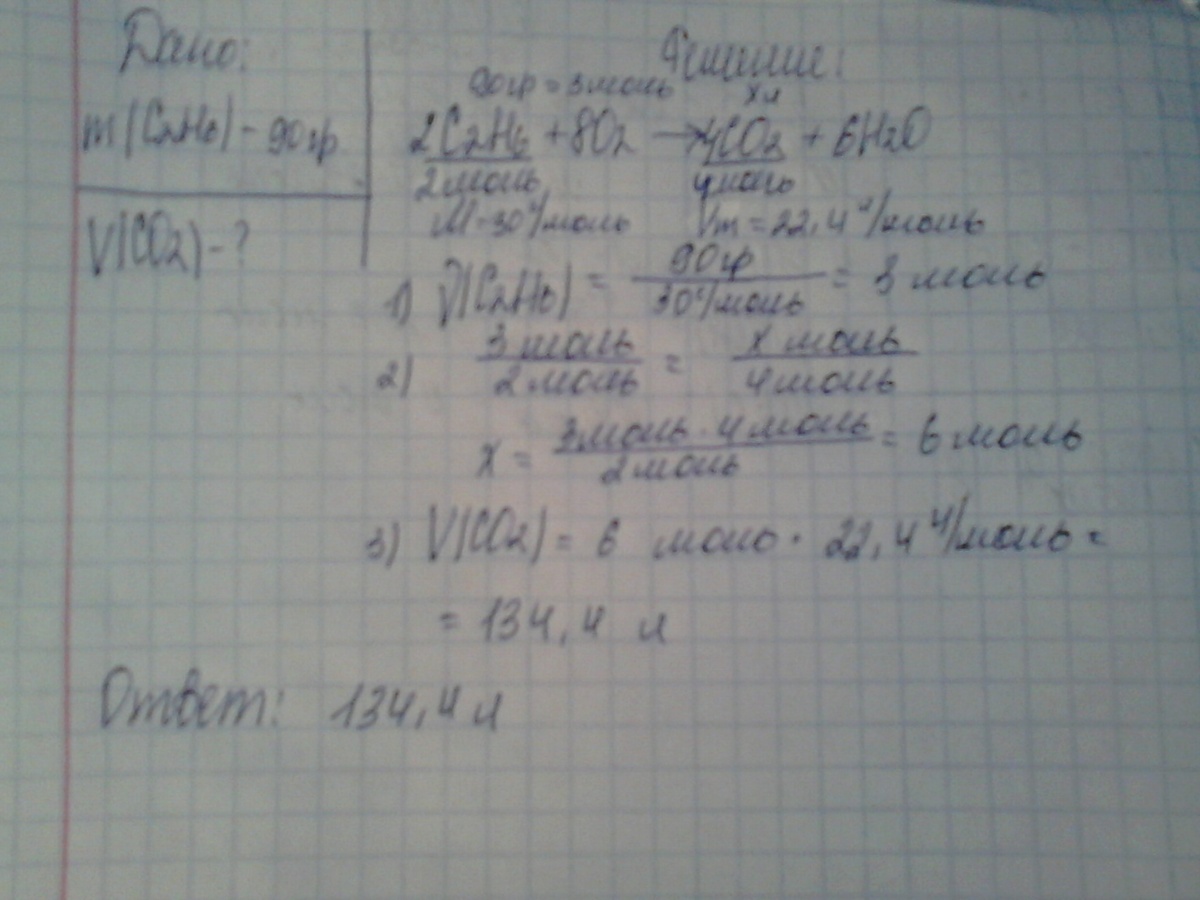 Дано:
m(C2H6) - 90гр
V(CO2) - ?
Решение:
90гр = 3моль
xл
2C2H6 + 8O2 → 4CO2 + 6H2O
2моль, 4моль
M - 30г/моль Vm = 22,4 л/моль
1) ν(C2H6) = 90гр / 30г/моль = 3 моль
2) 3 моль / 2 моль = x моль / 4 моль
x = 3моль · 4 моль / 2 моль = 6 моль
3) V(CO2) = 6 моль · 22,4 л/моль =
= 134,4 л
Ответ: 134,4 л